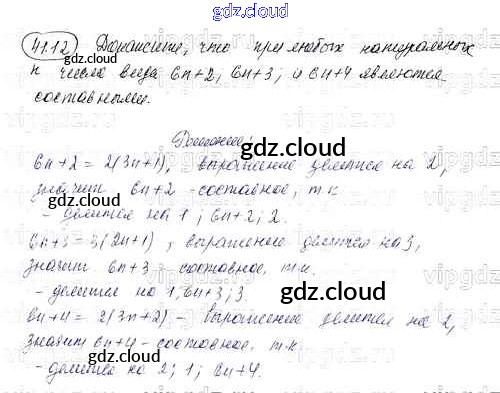 gdz.cloud
41.12 Докажите, что при любых натуральных
n числа вида 6n+2, 6n+3; и 6n+4 являются
составными.
gdz.cloud
6n+2 = 2(3n+1), выражение делится на 2,
значит 6n+2 - составное, т.к
- делится на 1; 6n+2; 2.
6n+3 = 3(2n+1), выражение делится на 3,
значит 6n+3 - составное, т.к.
- делится на 1, 6n+3; 3.
gdz.cloud
6n+4 = 2(3n+2) - выражение делится на 2,
значит 6n+4 - составное, т.к.
gdz.cloud
- делится на 2; 1; 6n+4.